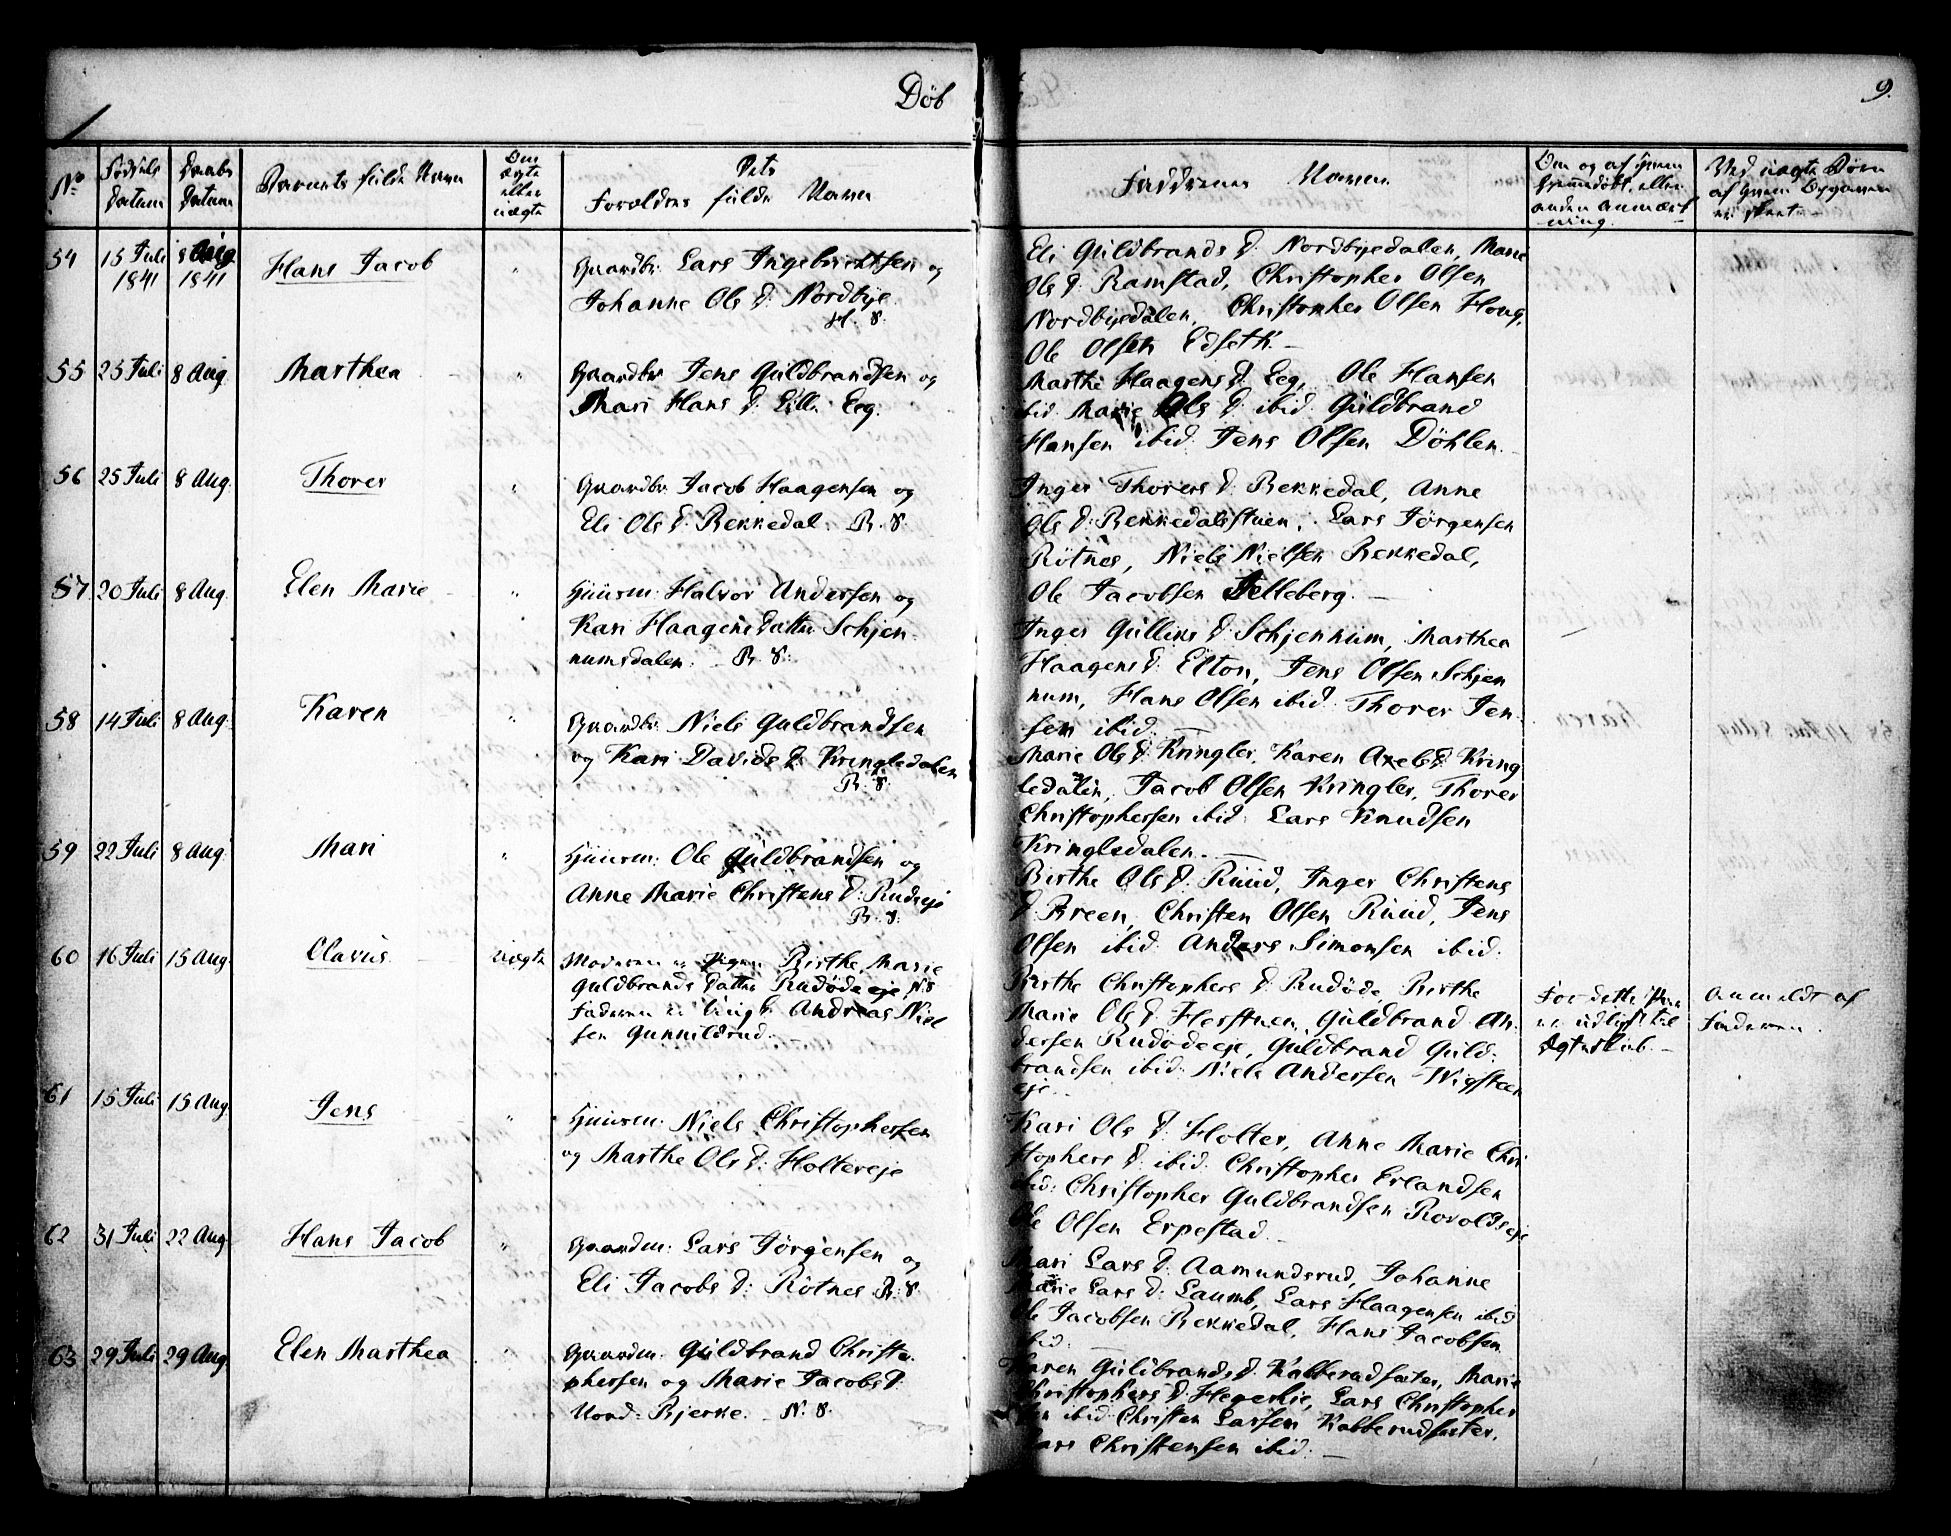 Döb
9.
No
Fødsels Datum
Daabs Datum
Barnets fulde Navn
Om ægte eller uægte
Forældres fulde Navn
Faddernes Navne
Om og af hvem hjemmedöbt, eller anden Anmærkning.
Ved uægte Børn af hvem Opgaven er skeet
54 15 Juli 1841 8 Aug 1841 Hans Jacob "
Gaardbr: Lars Ingebrichtsen og
Johanne Ols D. Nordbye
H. S.
Eli Guldbrands D. Nordbyedalen, Marie
Ols D. Ramstad, Christopher Olsen
Nordbyedalen, Christopher Olsen Houg,
Ole Olsen Edseth. —
55 25 Juli 8 Aug. Marthea "
Gaardbr Jens Guldbrandsen og
Mari Hans D. Lille Eeg.
Marthe Haagens D. Eeg, Ole Hansen
ibid. Marie Ols D. ibid. Guldbrand
Hansen ibid. Jens Olsen Döhlen.
56 25 Juli 8 Aug. Thorer "
Gaardbr. Jacob Haagensen og
Eli Ols D. Bekkedal. R. S.
Inger Thorers D. Bekkedal, Anne
Ols D. Bekkedalsstuen, Lars Jörgensen
Rötnes, Niels Nielsen Bekkedal,
Ole Jacobsen Jelleberg. —
57 20 Juli 8 Aug. Elen Marie "
Huusm: Halvor Andersen og
Kari Haagens Datter Schjen
numsdalen. R. S.
Inger Gulliks D. Schjennum, Marthea
Haagens D. Elton, Jens Olsen Schjen
num, Hans Olsen ibid. Thorer Jen
sen ibid. —
58 14 Juli 8 Aug. Karen "
Gaardbr. Niels Guldbrandsen
og Kari Davids D. Kringledalen
R. S.
Marie Ols D. Kringler, Karen Axels D. Kring
ledalen, Jacob Olsen Kringler, Thorer
Christophersen ibid. Lars Knudsen
Kringledalen. —
59 22 Juli 8 Aug. Mari "
Huusm: Ole Guldbrandsen og
Anne Marie Christens D. Rudseje
R. S.
Birthe Ols D. Ruud, Inger Christens
D. Breen, Christen Olsen Ruud, Jens
Olsen ibid. Anders Simonsen ibid.
60 16 Juli 15 Aug. Olavus uægte
Moderen er Pigen Birthe Marie
Guldbrands Datter Rudödeeje N. S
Faderen er Ungk. Andreas Niel
sen Gunnildrud.
Birthe Christophers D. Rudöde, Birthe
Marie Ols D. Herstuen, Guldbrand An
dersen Rudödeeje, Guldbrand Guld
brandsen ibid. Niels Andersen Wigsteen
eje.
For dette Par
er udlyst til
Ægteskab. —
Anmeldt af
Faderen.
61 15 Juli 15 Aug. Jens "
Huusm: Niels Christophersen
og Marthe Ols D: Holtereje
Kari Ols D. Holter, Anne Marie Chri
stophers D. ibid. Christopher Erlandsen
ibid: Christopher Guldbrandsen Rovoldseje
Ole Olsen Erpestad. —
62 31 Juli 22 Aug. Hans Jacob "
Gaardm: Lars Jörgensen og
Eli Jacobs D: Rötnes R. S
Mari Lars D. Aamundsrud, Johanne
Marie Lars D: Laumb, Lars Haagensen ibid
Ole Jacobsen Bekkedal, Hans Jacobsen
ibid. —
63 29 Juli 29 Aug. Elen Marthea "
Gaardm: Guldbrand Christo
phersen og Marie Jacobs D.
Nord: Bjerke. N. S.
Karen Guldbrands D. Kabberudsæter, Marie
Christophers D. Hegerlie, Lars Christopher
sen ibid. Christen Larsen Kabberudsæter,
Lars Christensen ibid. —